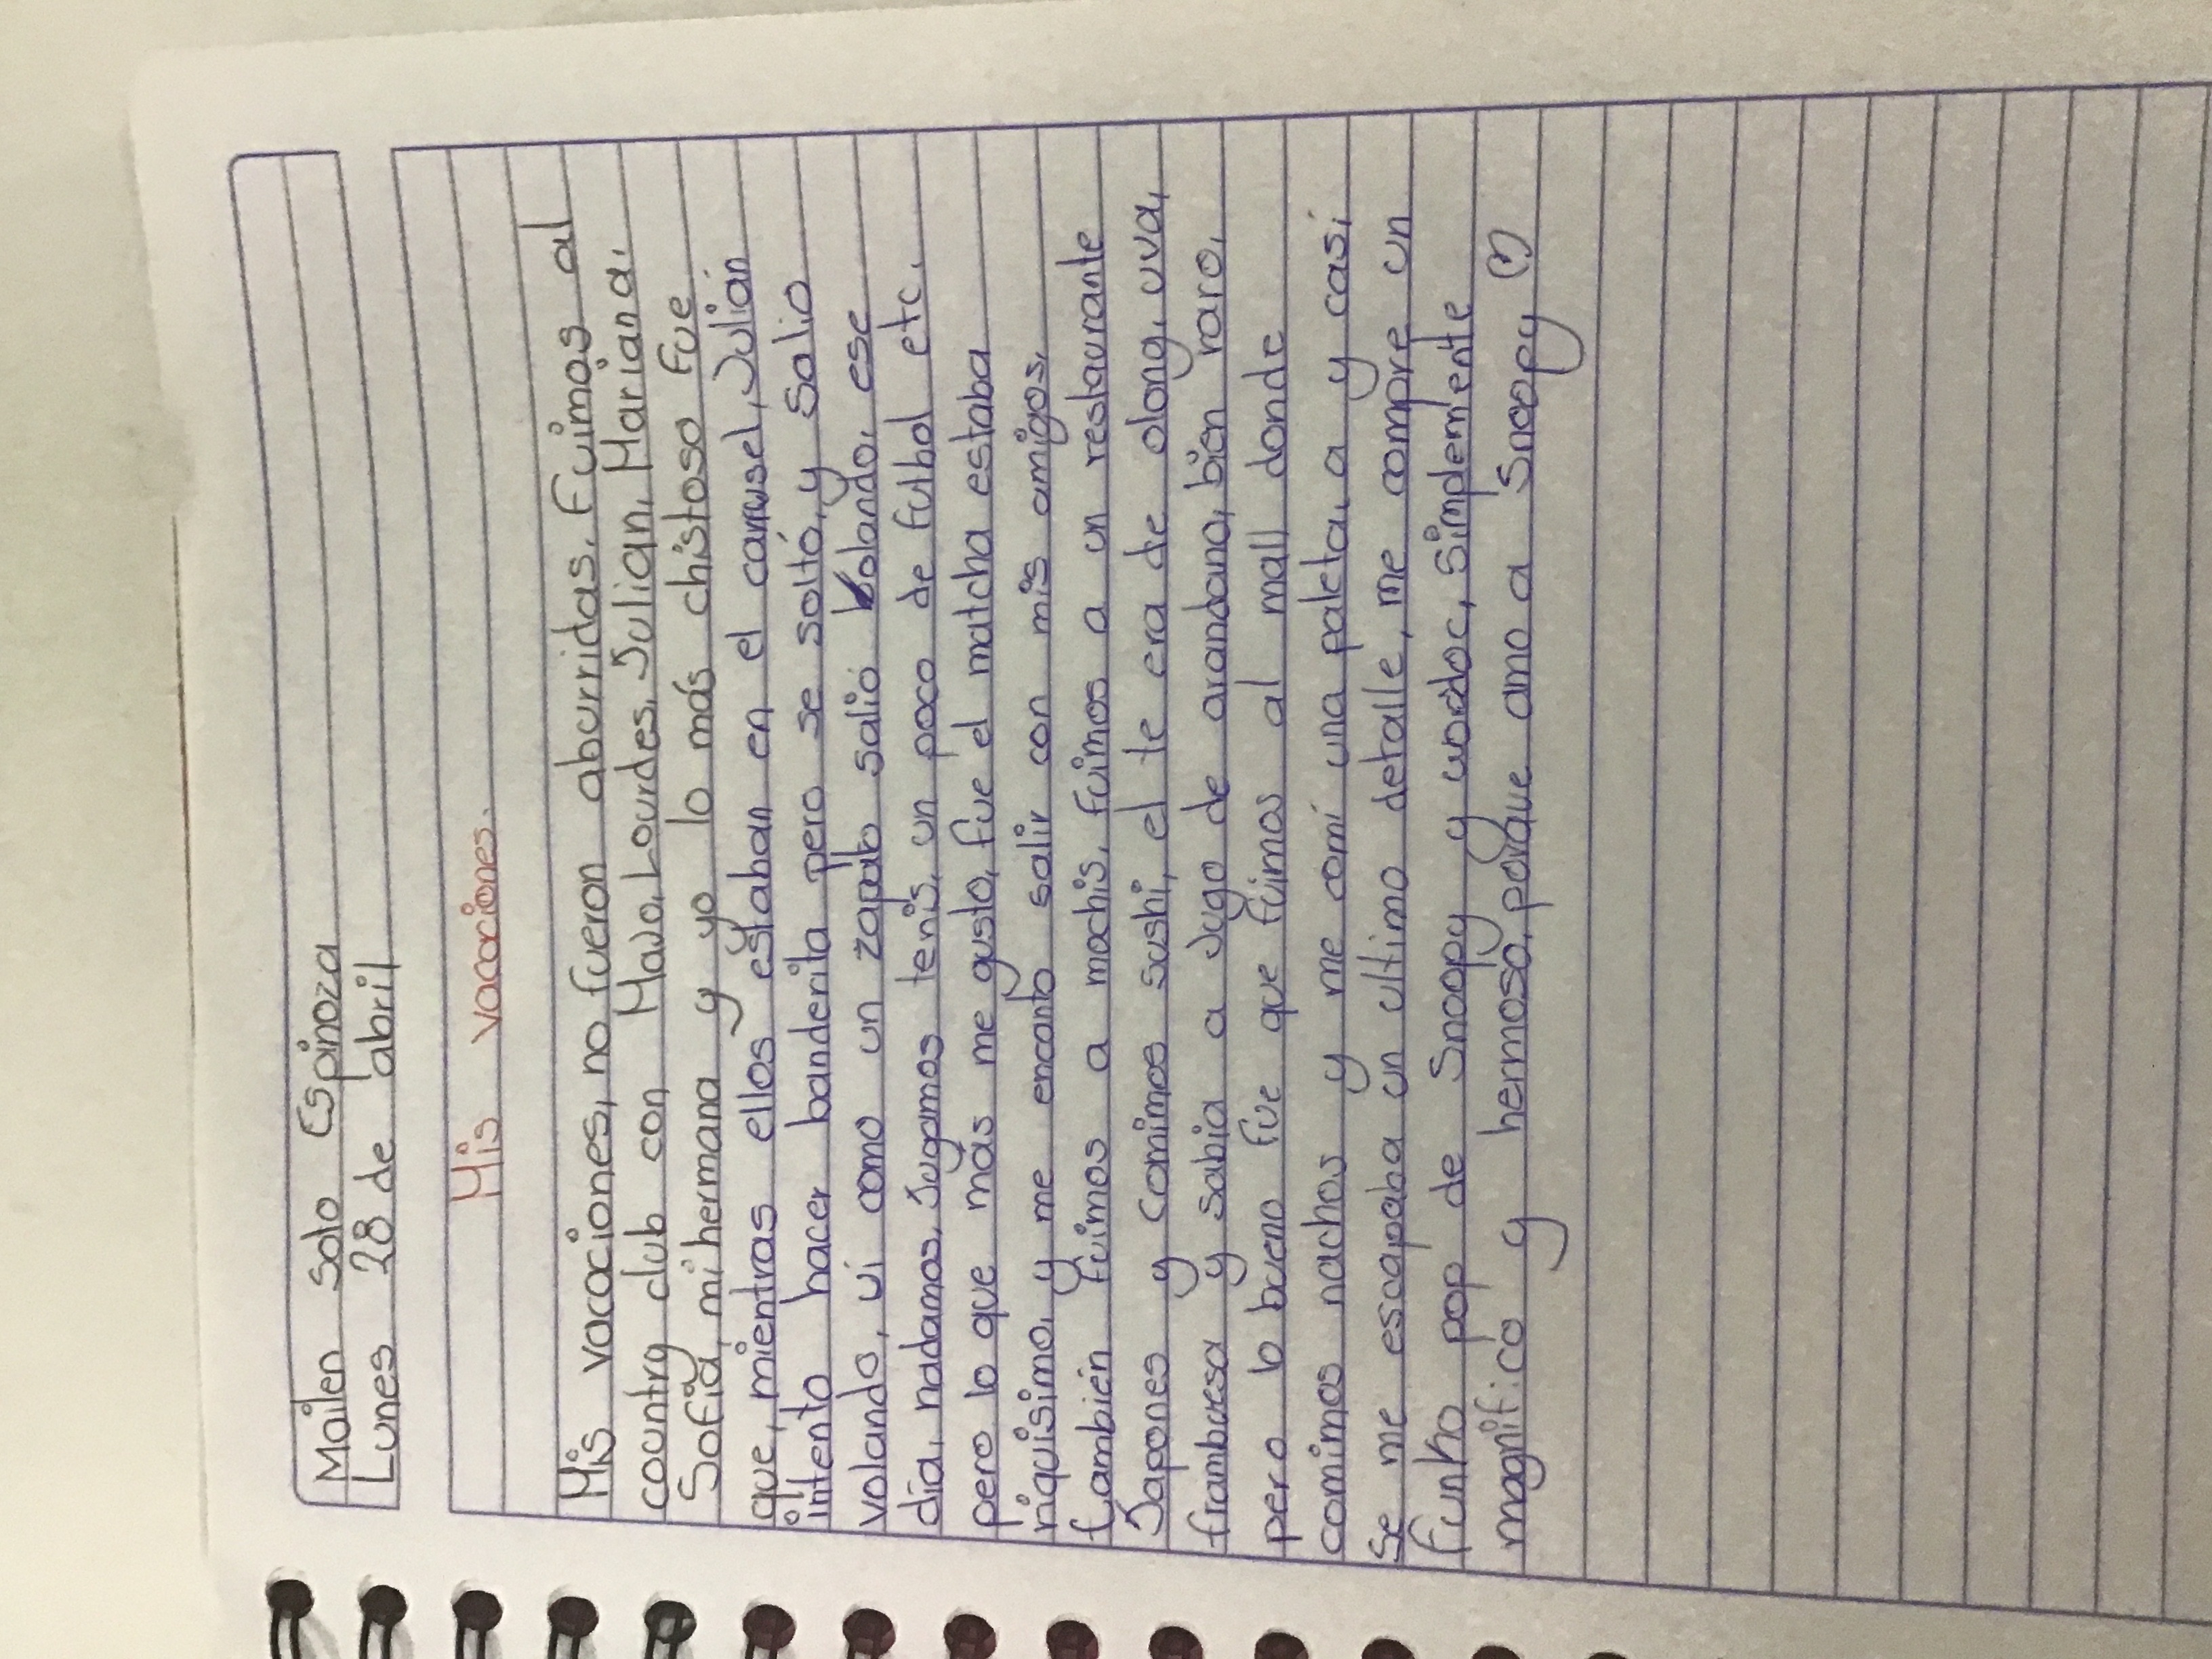 Mailen Soto Espinoza
Lunes 28 de abril
Mis vacaciones.
Mis vacaciones, no fueron aburridas. Fuimos al
country club con Majo, Lourdes, Julian, Mariana,
Sofia, mi hermana y yo lo más chistoso fue
que, mientras ellos estaban en el carrusel, Julián
intento hacer banderita pero se soltó, y salio
volando, vi como un zapato salió volando, ese
día, nadamos, jugamos tenis, un poco de futbol etc.
pero lo que más me gusto, fue el matcha estaba
riquisimo, y me encanto salir con mis amigos,
también fuimos a mochis, fuimos a un restaurante
Japones y comimos sushi, el te era de olong, uva,
frambuesa y sabia a jugo de arandano, bien raro,
pero lo bueno fue que fuimos al mall donde
comimos nachos y me comí una paleta, a y casi
se me escapaba un ultimo detalle, me compre un
funko pop de Snoopy y wodoc, simplemente
magnifico y hermoso, porque amo a Snoopy ♡